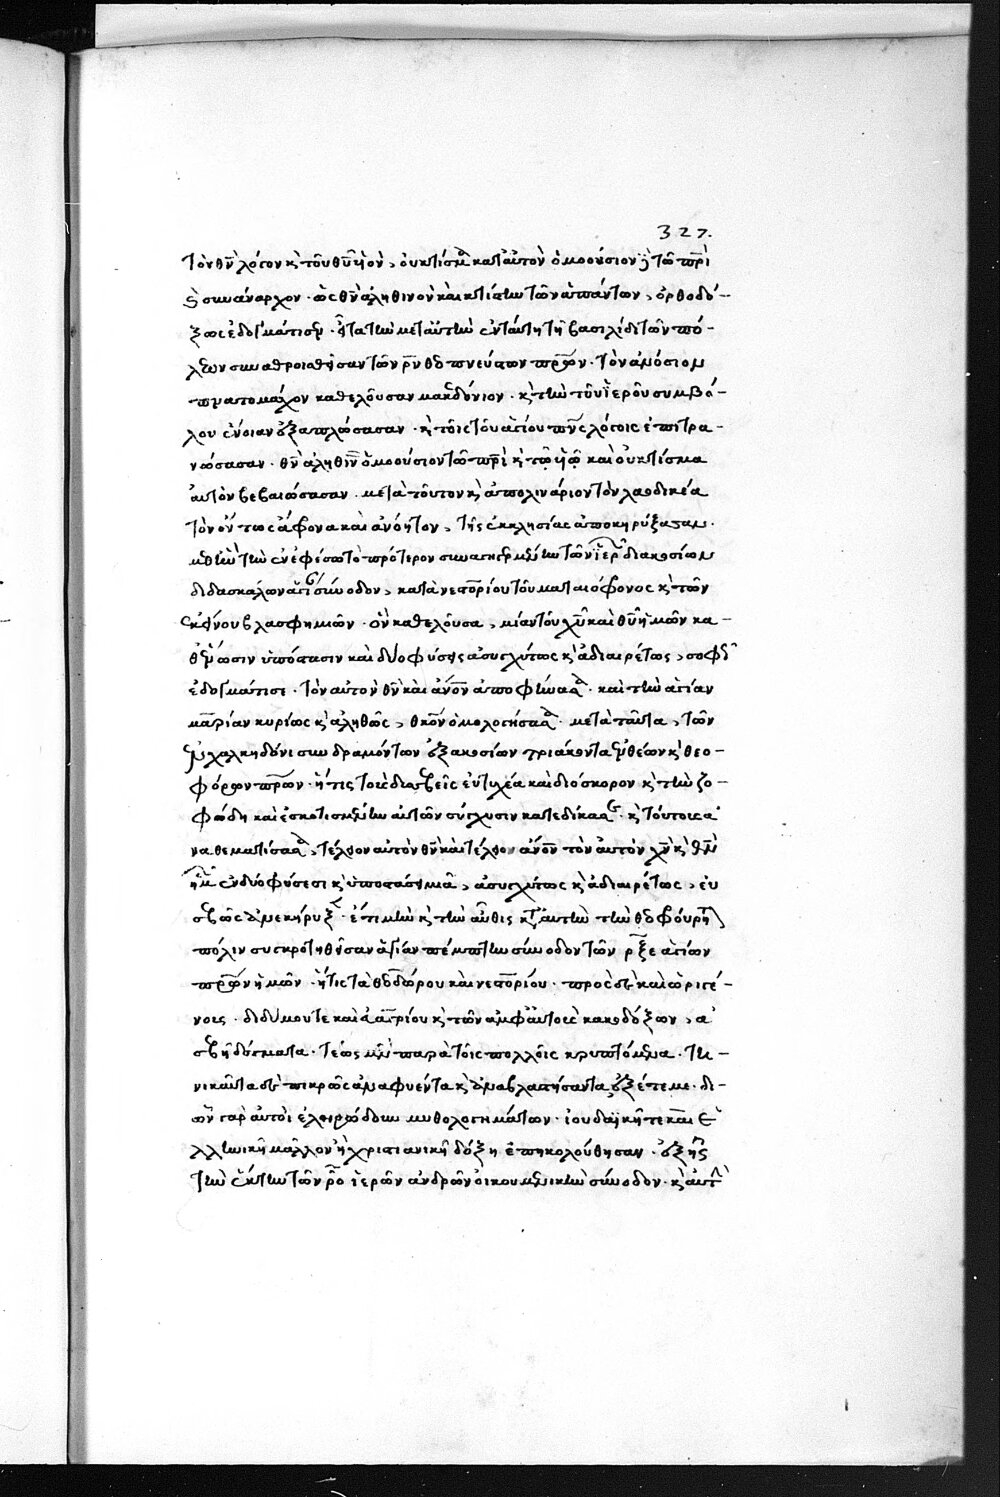 327.
τὸν θν λόγον κ τοῦ θυ υἱὸν, οὐ κτίσμα κατ αὐτὸν ὁμοούσιον τῶ πρὶ
συνάναρχον · ὡς θν ἀληθινὸν καὶ κτίστην τῶν ἁπάντων, ὀρθοδό-
ξως ἐδογμάτισεν · εἶτα τὴν μετ αὐτὴν ἐν ταύτη τῆ βασιλίδι τῶν πό-
λεων συναθροισθεῖσαν τῶν ρν θεοπνεύστων πρων · τὸν ἀνόσιον
πνατομάχον καθελοῦσαν μακεδόνιον · κ τὴν τοῦ ἱεροῦ συμβό-
λου ἔννοιαν ἐξαπλώσασαν · κ τοῖς τοῦ ἁγίου πνς λόγοις ἐπιτρα-
νώσασαν · θν ἀληθινὸν ὁμοούσιον τῶ πρὶ κ τῶ υἱῶ καὶ οὐ κτίσμα
αὐτὸν βεβαιώσασαν · μετὰ τοῦτον κ ἀπολινάριον τὸν λαοδικέα
τὸν ὄντως ἄφρονα καὶ ἀνόητον, τῆς ἐκκλησίας ἀποκηρύξασαν ·
μεθ ἣν τὴν ἐν ἐφέσω τὸ πρότερον συναγηγερμένην τῶν ἱερῶν διακοσίων
διδασκάλων ἁγίαν σύνοδον, κατὰ νεστορίου τοῦ ματαιόφρονος κ τῶν
ἐκείνου βλασφημιῶν · ὃν καθελοῦσα, μίαν τοῦ χυ καὶ θυ ἡμῶν κα-
θ ἕνωσιν ὑπόστασιν καὶ δύο φύσεις ἀσυγχύτως κ ἀδιαιρέτως, σοφῶς
ἐδογμάτισε · τὸν αὐτὸν θν καὶ ἀνον ἀποφήνασα · καὶ τὴν ἁγίαν
μαρίαν κυρίως κ ἀληθῶς, θκον ὁμολογήσασα · μετὰ ταῦτα, τῶν
ἐν χαλκηδόνι συνδραμόντων ἑξακοσίων τριάκοντα ἐνθέων κ θεο-
φόρων πρων · ἥτις τοὺς δυσσεβεῖς εὐτυχέα καὶ διόσκορον κ τὴν ζο-
φώδη καὶ ἐσκοτισμένην αὐτῶν σύγχυσιν κατεδίκασε · κ τούτους ἀ
ναθεματίσασα, τέλειον αὐτὸν θν καὶ τέλειον ἀνον τὸν αὐτὸν χν κ θν
ἡμῶν ἐν δύο φύσεσι κ ὑποστάσει μιᾶ, ἀσυγχύτως κ ἀδιαιρέτως, εὐ
σεβῶς ἀνεκήρυξεν · ἔτι μὴν κ τὴν αὖθις κατ αὐτὴν τὴν θεοφρούρητον
πόλιν συγκροτηθεῖσαν ἁγίαν πέμπτην σύνοδον τῶν ρξε ἁγίων
πρων ἡμῶν · ἥτις τὰ θεοδώρου καὶ νεστορίου · πρὸς δὲ καὶ ὠριγέ-
νους · διδύμου τε καὶ εὐαγρίου κ τῶν ἀμφ αὐτοὺς κακοδόξων, ἀ
σεβῆ δόγματα · τέως μὲν παρὰ τοῖς πολλοῖς κρυπτόμενα · τη-
νικαῦτα δὲ πικρῶς ἀναφυέντα κ ἀναβλαστήσαντα, ἐξέτεμε · δι-
ῶν γὰρ αὐτοὶ ἐληρώδουν μυθολογημάτων · ἰουδαϊκῆ τε καὶ ἑ
λληνικῆ μᾶλλον ἢ χριστιανικῆ δόξη ἐπηκολούθησαν · ἑξῆς
τὴν ἕκτην τῶν ρο ἱερῶν ἀνδρῶν οἰκουμενικὴν σύνοδον · κ αὐτὴν